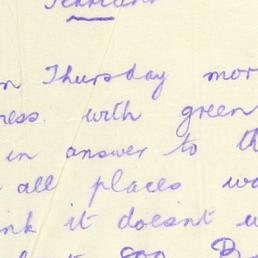 n Thursday mor
ress. with green
in answer to th
all places wa
nk it doesnt w